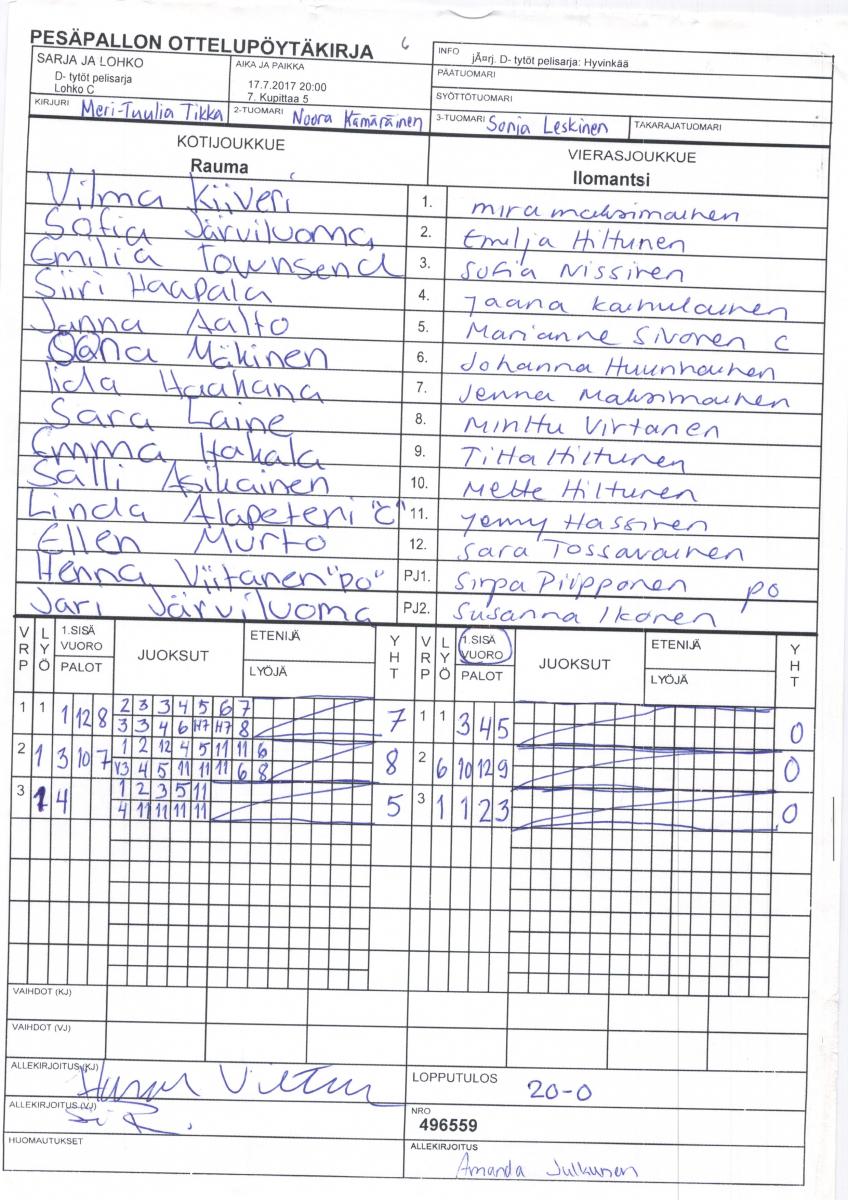 PESÄPALLON OTTELUPÖYTÄKIRJA 6
SARJA JA LOHKO
D- tytöt pelisarja
Lohko C
AIKA JA PAIKKA
17.7.2017 20:00
7. Kupittaa 5
INFO jÃ¤rj. D- tytöt pelisarja: Hyvinkää
PÄÄTUOMARI
SYÖTTÖTUOMARI
KIRJURI Meri-Tuulia Tikka 2-TUOMARI Noora Kämäräinen 3-TUOMARI Sonja Leskinen TAKARAJATUOMARI
KOTIJOUKKUE VIERASJOUKKUE
Rauma Ilomantsi
Vilma Kiiveri 1. mira maksimainen
Sofia Järviluoma 2. Emilja Hiltunen
Emilia Townsend 3. Sofia Nissinen
Siiri Haapala 4. Jaana Kaihulainen
Janna Aalto 5. Marianne Sivonen C
Oona Mäkinen 6. Johanna Huunhainen
Iida Haahana 7. Jenna Maksimainen
Sara Laine 8. Minttu Virtanen
Emma Hakala 9. Titta Hiltunen
Salli Asikainen 10. Mette Hiltunen
Linda Alapeteri "C" 11. Jenny Hassinen
Ellen Murto 12. Sara Tossavainen
Henna Viitanen "PO" PJ1. Sirpa Piipponen PO
Jari Järviluoma PJ2. Susanna Ikonen
VRP LYÖ 1.SISÄ VUORO PALOT JUOKSUT ETENIJÄ LYÖJÄ YHT VRP LYÖ 1.SISÄ VUORO PALOT JUOKSUT ETENIJÄ LYÖJÄ YHT
1 1 1 12 8 2 3 3 4 5 6 7 7 1 1 3 4 5 0
3 3 4 6 H7 H7 8
2 1 3 10 7 1 2 12 4 5 11 11 6 8 2 6 10 12 9 0
V3 4 5 11 11 11 6 8
3 1 4 1 2 3 5 11 5 3 1 1 2 3 0
4 11 11 11 11
VAIHDOT (KJ)
VAIHDOT (VJ)
ALLEKIRJOITUS (KJ)
LOPPUTULOS 20-0
ALLEKIRJOITUS (VJ)
NRO
496559
HUOMAUTUKSET
ALLEKIRJOITUS
Amanda Julkunen